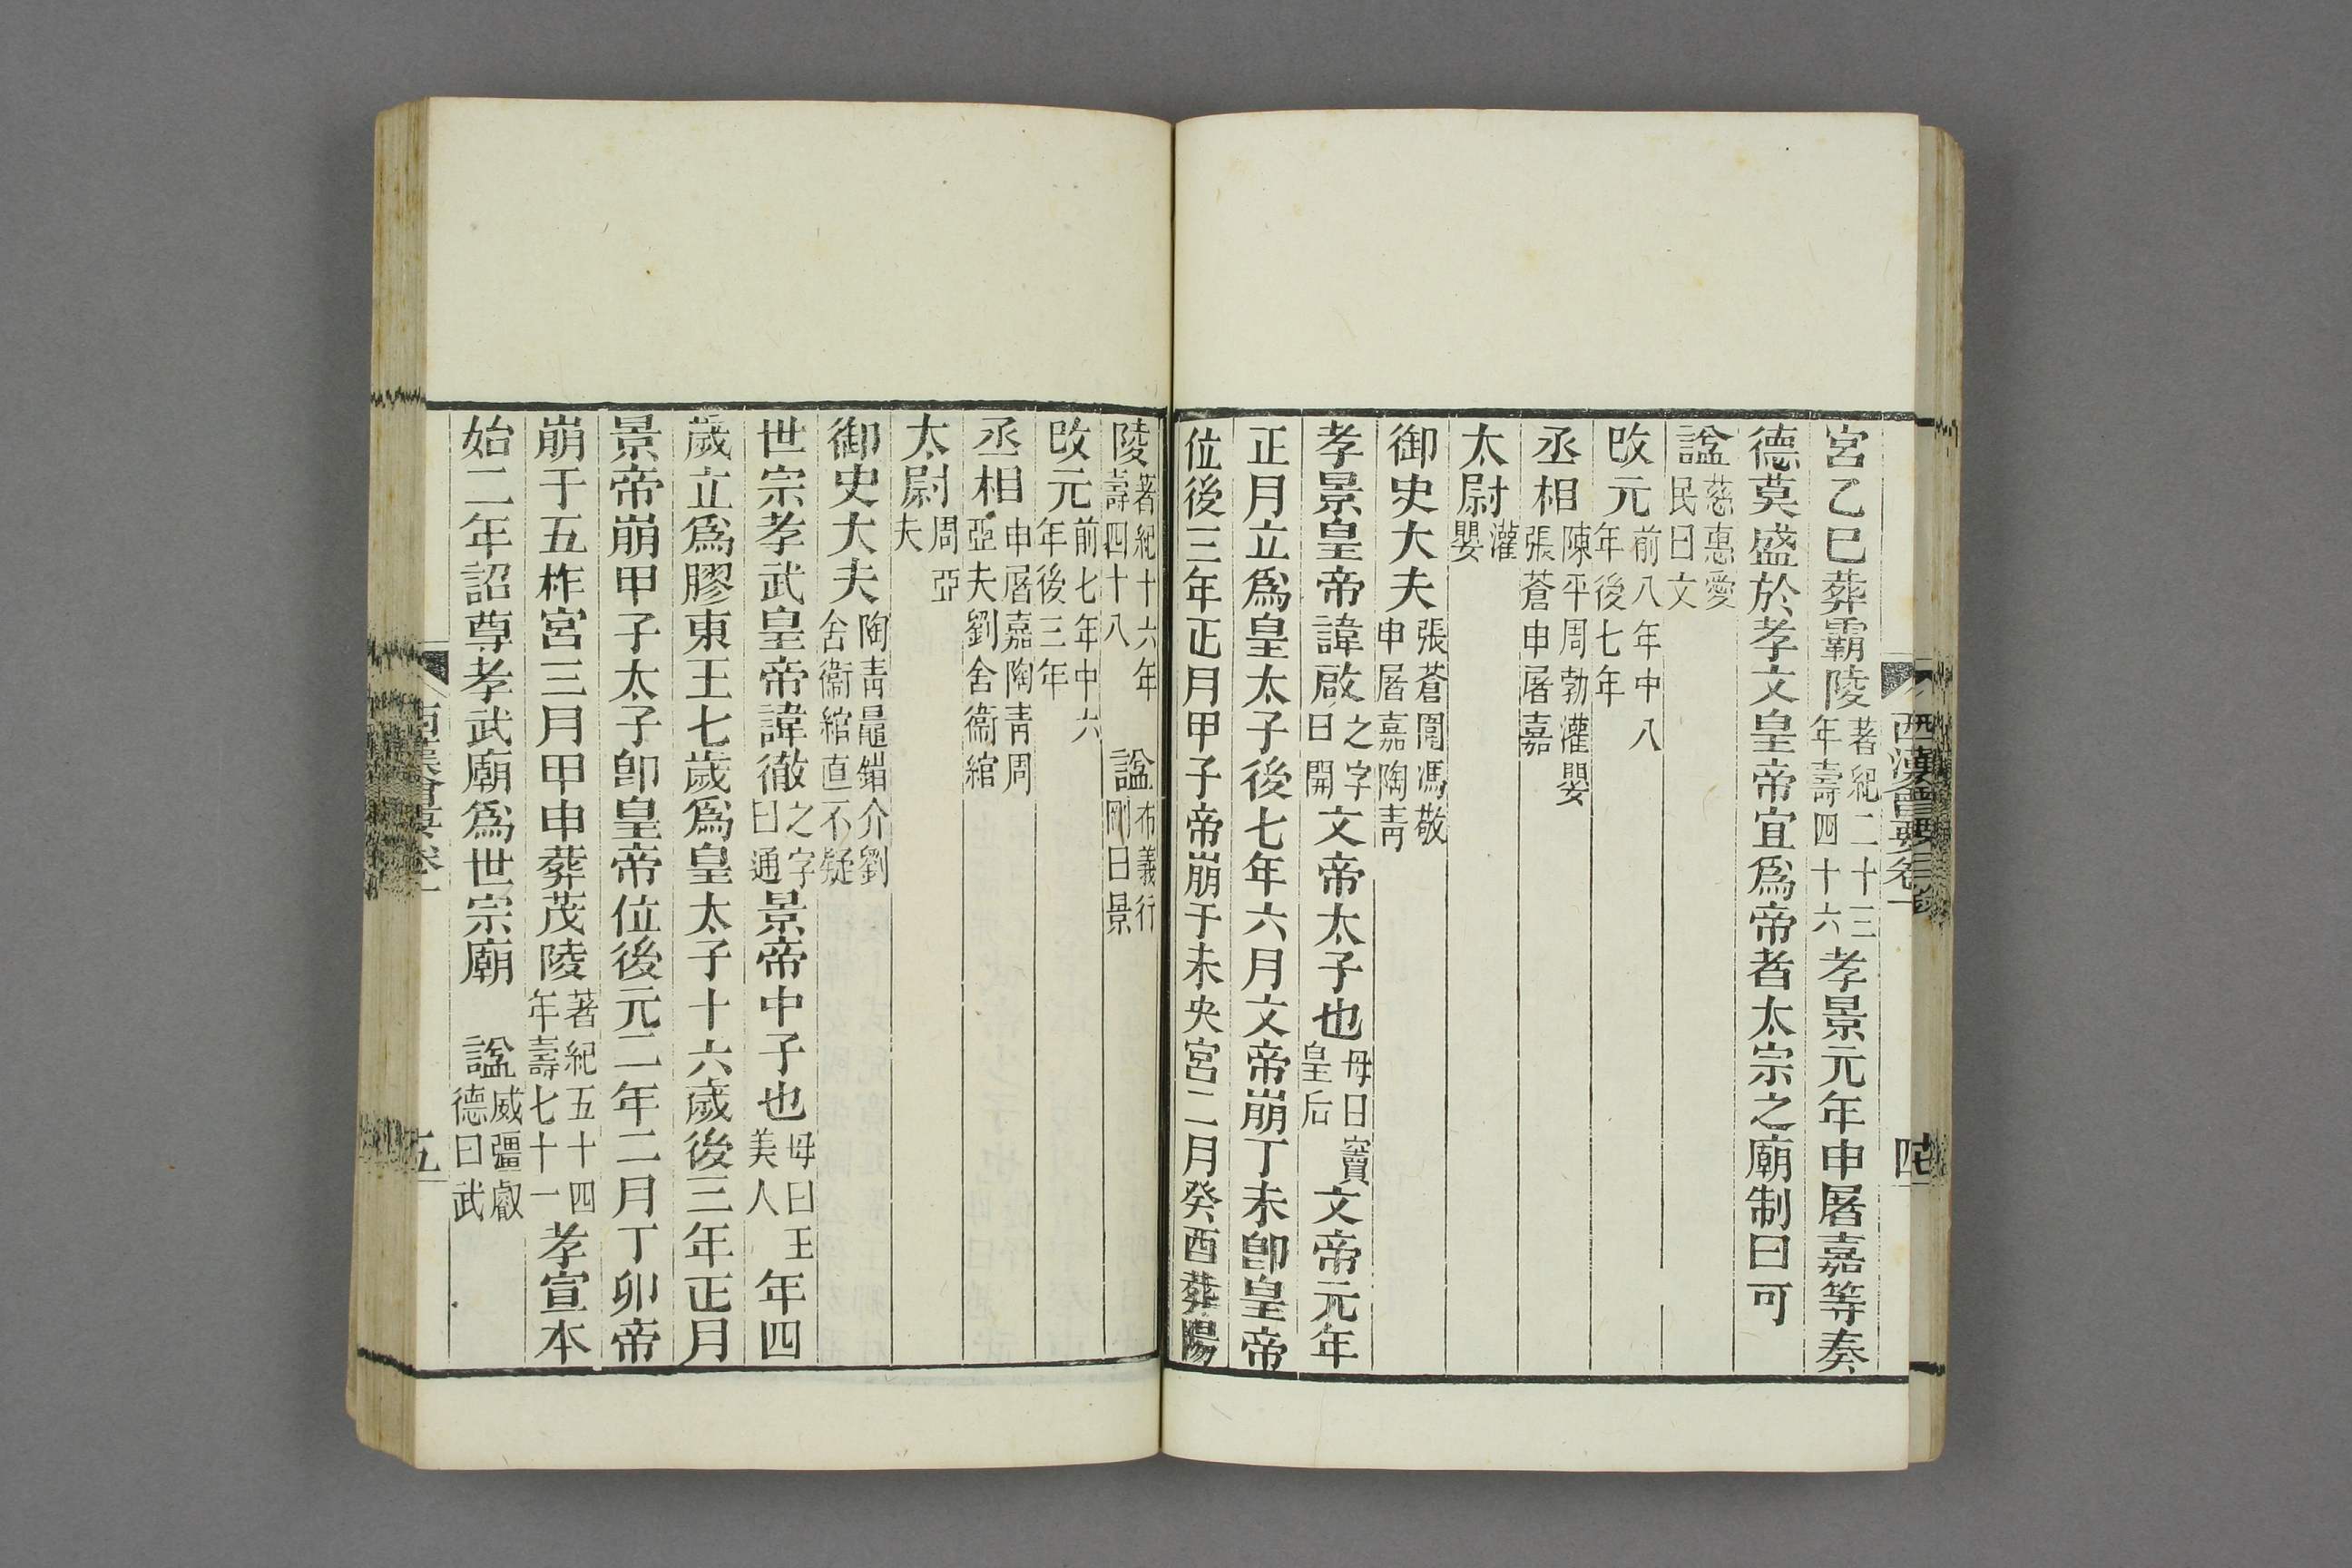 西漢會要卷一
四
宮乙巳葬霸陵著紀二十三年壽四十六孝景元年申屠嘉等奏
德莫盛於孝文皇帝宜爲帝者太宗之廟制曰可
諡慈惠愛民曰文
改元前八年中八年後七年
丞相陳平周勃灌嬰張蒼申屠嘉
太尉灌嬰
御史大夫張蒼圍馮敬申屠嘉陶靑
孝景皇帝諱啟之字曰開文帝太子也母曰竇皇后文帝元年
正月立爲皇太子後七年六月文帝崩丁未卽皇帝
位後三年正月甲子帝崩于未央宮二月癸酉葬陽
陵著紀十六年壽四十八 諡布義行剛曰景
改元前七年中六年後三年
丞相申屠嘉陶靑周亞夫劉舍衞綰
太尉周亞夫
御史大夫陶靑鼂錯介劉舍衞綰直不疑
世宗孝武皇帝諱徹之字曰通景帝中子也母曰王美人年四
歲立爲膠東王七歲爲皇太子十六歲後三年正月
景帝崩甲子太子卽皇帝位後元二年二月丁卯帝
崩于五柞宮三月甲申葬茂陵著紀五十四年壽七十一孝宣本
始二年詔尊孝武廟爲世宗廟 諡威彊叡德曰武
西漢會要卷一
五